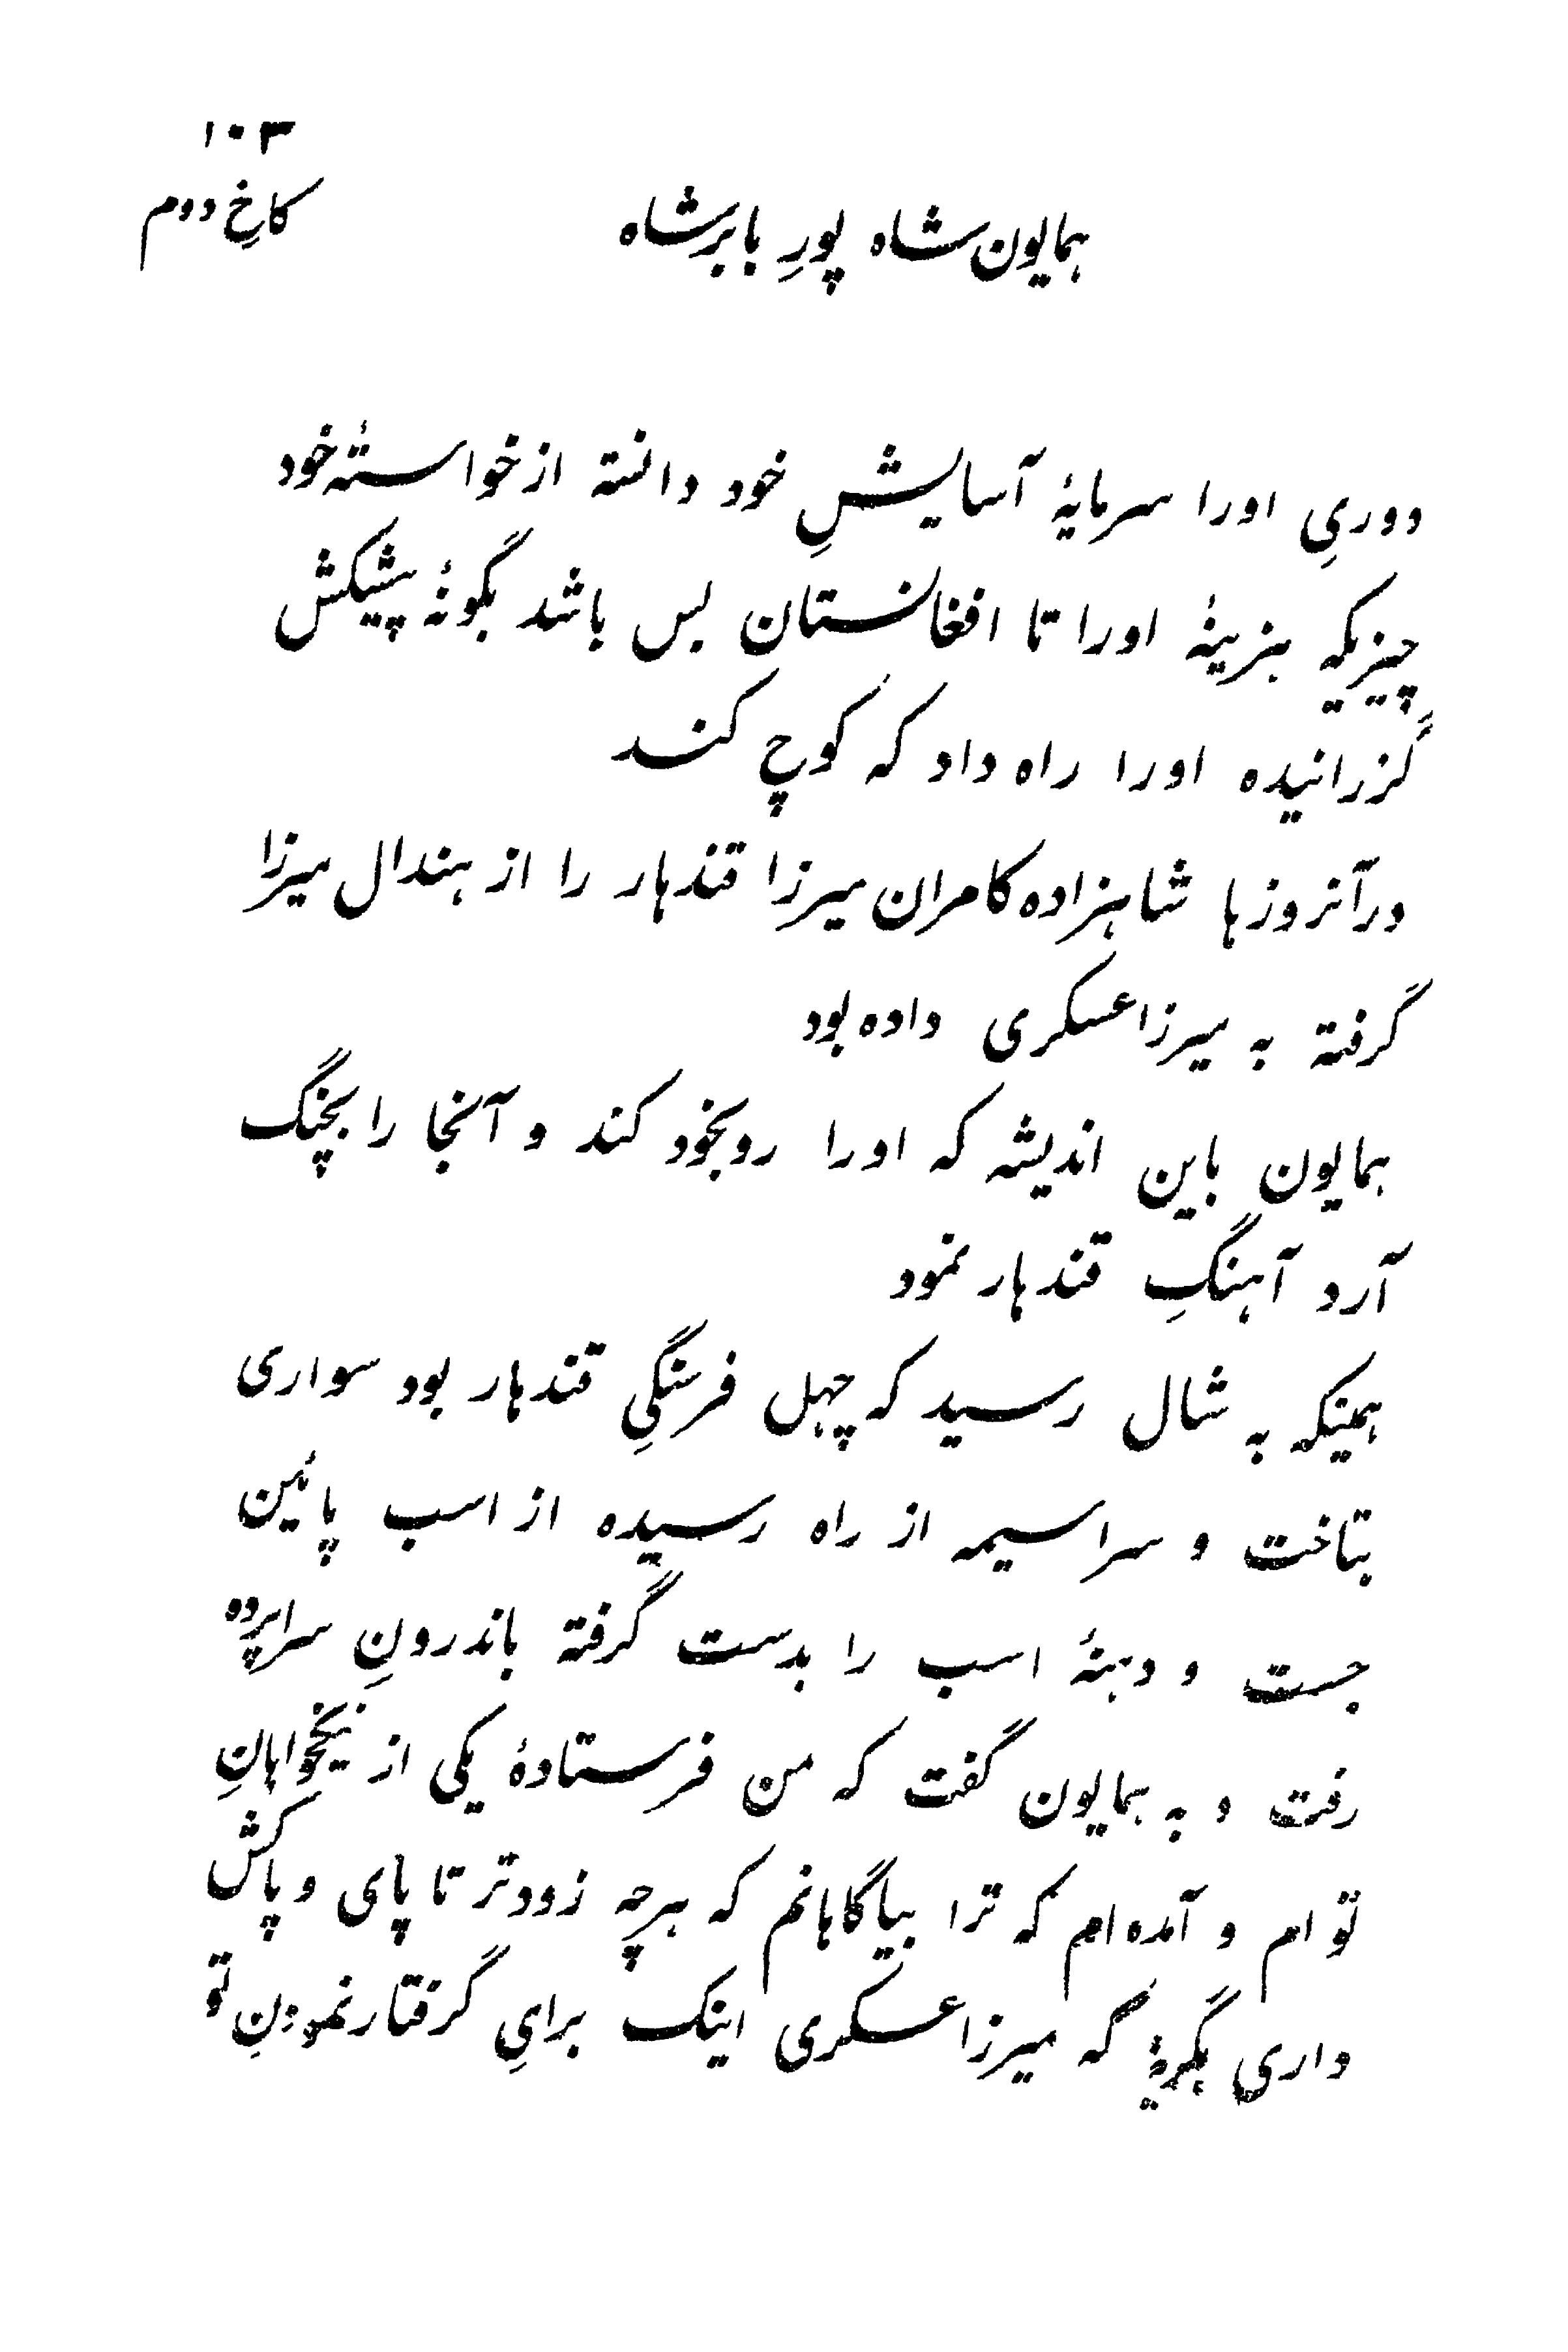 ۱۰۳
کاخِ دوم
همایون شاه پورِ بابر شاه
دوریِ اورا سرمایهٔ آسایشِ خود دانسته از خواستهٔ خود
چیزیکه بهزینهٔ اورا تا افغانستان بس باشد بگونهٔ پیشکش
گزرانیده اورا راه داد که کوچ کند
در آنروزها شاهزاده کامران میرزا قندهار را از هندال میرزا
گرفته به میرزا عسکری داده بود
همایون باین اندیشه که اورا روبخود کند و آنجا را بچنگ
آرد آهنگِ قندهار نمود
همینکه به شال رسید که چهل فرسنگیِ قندهار بود سواری
بتاخت و سراسیمه از راه رسیده از اسب پائین
جست و دهنهٔ اسب را بدست گرفته باندرونِ سراپرده
رفت و به همایون گفت که من فرستادهٔ یکی از نیکخواهانِ
تو ام و آمده ام که ترا بیاگاهانم که هرچه زودتر تا پای و پاکش
داری که میرزا عسکری اینک برایِ گرفتار نمودنِ تو